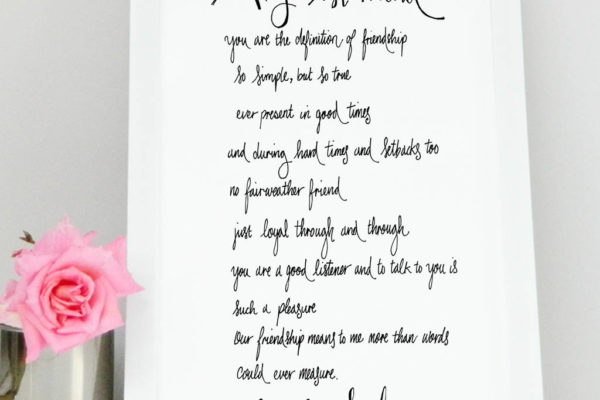 My best friend
you are the definition of friendship
so simple, but so true
ever present in good times
and during hard times and setbacks too
no fairweather friend
just loyal through and through
you are a good listener and to talk to you is
such a pleasure
Our friendship means to me more than words
could ever measure.